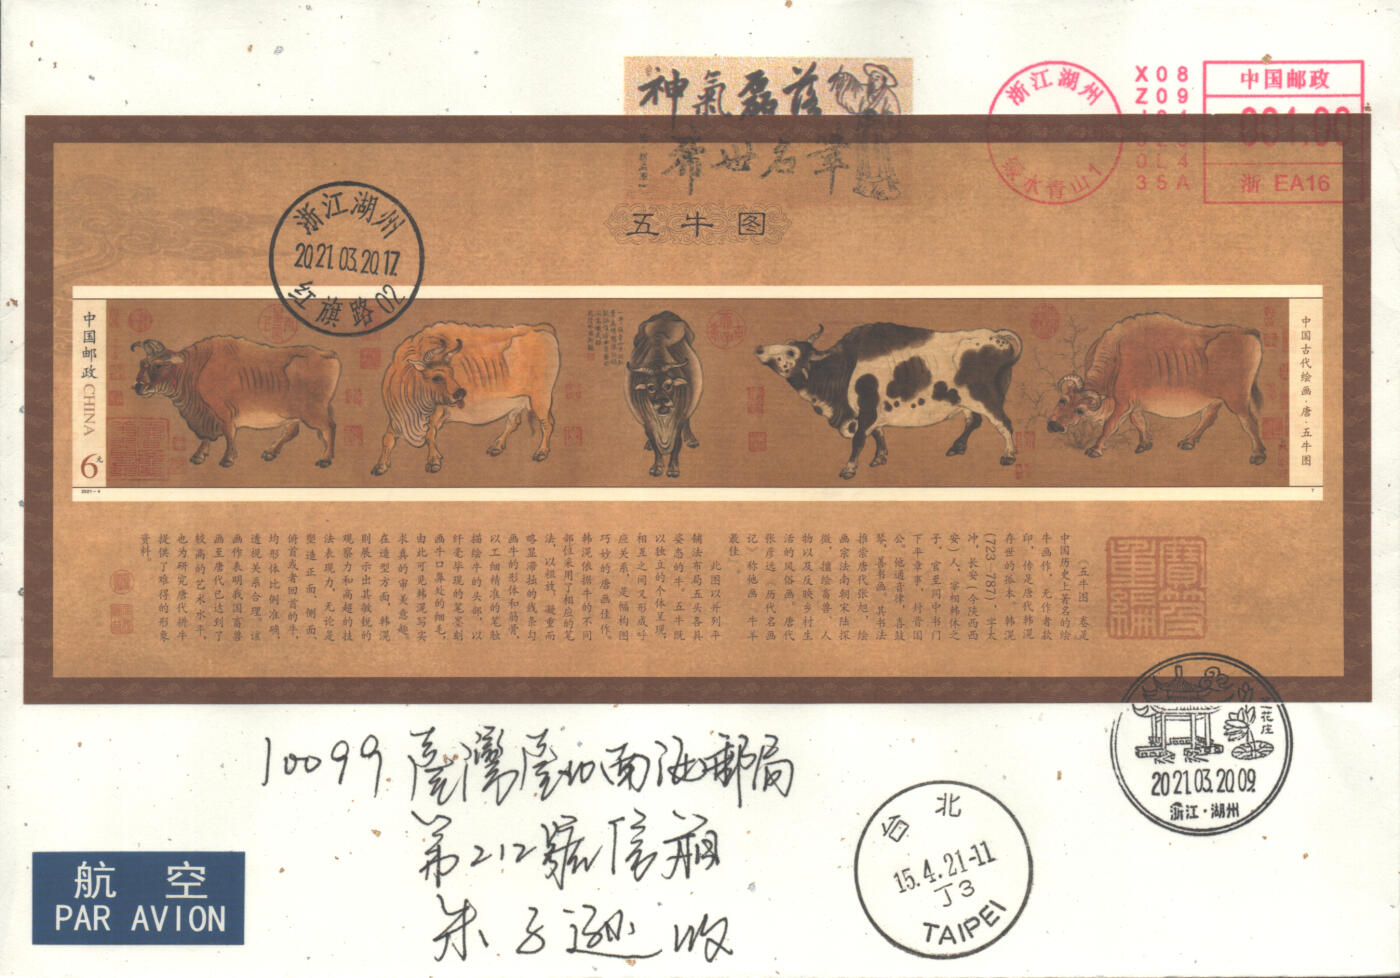 神氣磊落
希世名筆
浙江湖州
X08
Z09
中国邮政
浙 EA16
35A
五牛图
浙江湖州
2021.03.20.17
红旗路02
中国邮政 CHINA
6元
2021-4
中国古代绘画·唐·五牛图
《五牛图》卷是
中国历史上著名的绘
牛画作,无作者款
印,传是唐代韩滉
存世的孤本。韩滉
(723—787),字太
冲,长安(今陕西西
安)人,宰相韩休之
子,官至同中书门
下平章事,封晋国
公。他通音律,喜鼓
琴,善书画,其书法
推崇唐代张旭,绘
画宗法南朝宋陆探
微,擅绘畜兽、人
物以及反映乡村生
活的风俗画。唐代
张彦远《历代名画
记》称他画“牛羊
最佳”。
此图以并列平
铺法布局五头各具
姿态的牛。五牛既
以独立的个体呈现,
相互之间又形成呼
应关系,是幅构图
巧妙的唐画佳作。
韩滉依据牛的不同
部位采用了相应的笔
法,以粗放、凝重而
略显滞拙的线条勾
画牛的形体和筋骨,
以工细精准的笔触
描绘牛的头部,以
纤毫毕现的笔墨刻
画牛口鼻处的细毛,
由此可见韩滉写实
求真的审美意趣。
在造型方面,韩滉
则展示出其敏锐的
观察力和高超的技
法表现力,无论是
塑造正面、侧面、
俯首或者回首的牛,
均形体比例准确,
透视关系合理。该
画作表明我国畜兽
画至唐代已达到了
较高的艺术水平,
也为研究唐代耕牛
提供了难得的形象
资料。
花庄
2021.03.20.09
浙江·湖州
10099 臺灣臺北南海郵局
第212號信箱
朱子遜 收
台北
15.4.21-11
J3
TAIPEI
航空
PAR AVION